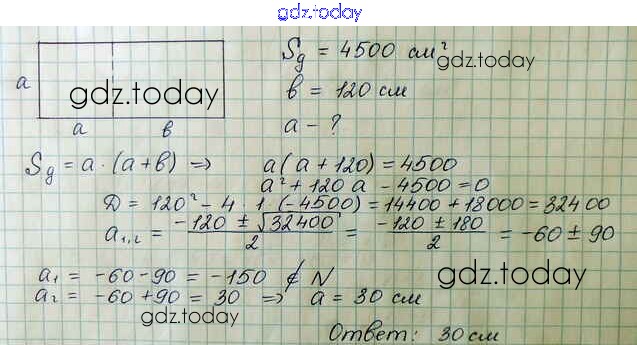 gdz.today
S_g = 4500 см²
gdz.today
a
gdz.today
в = 120 см
a - ?
a в
S_g = a · (a + в) ⇒ a(a + 120) = 4500
a² + 120 a - 4500 = 0
Д = 120² - 4 · 1 · (-4500) = 14400 + 18000 = 32400
a₁,₂ = (-120 ± √32400)/2 = (-120 ± 180)/2 = -60 ± 90
a₁ = -60 - 90 = -150 ∉ N
gdz.today
a₂ = -60 + 90 = 30 ⇒ a = 30 см
gdz.today
Ответ: 30 см